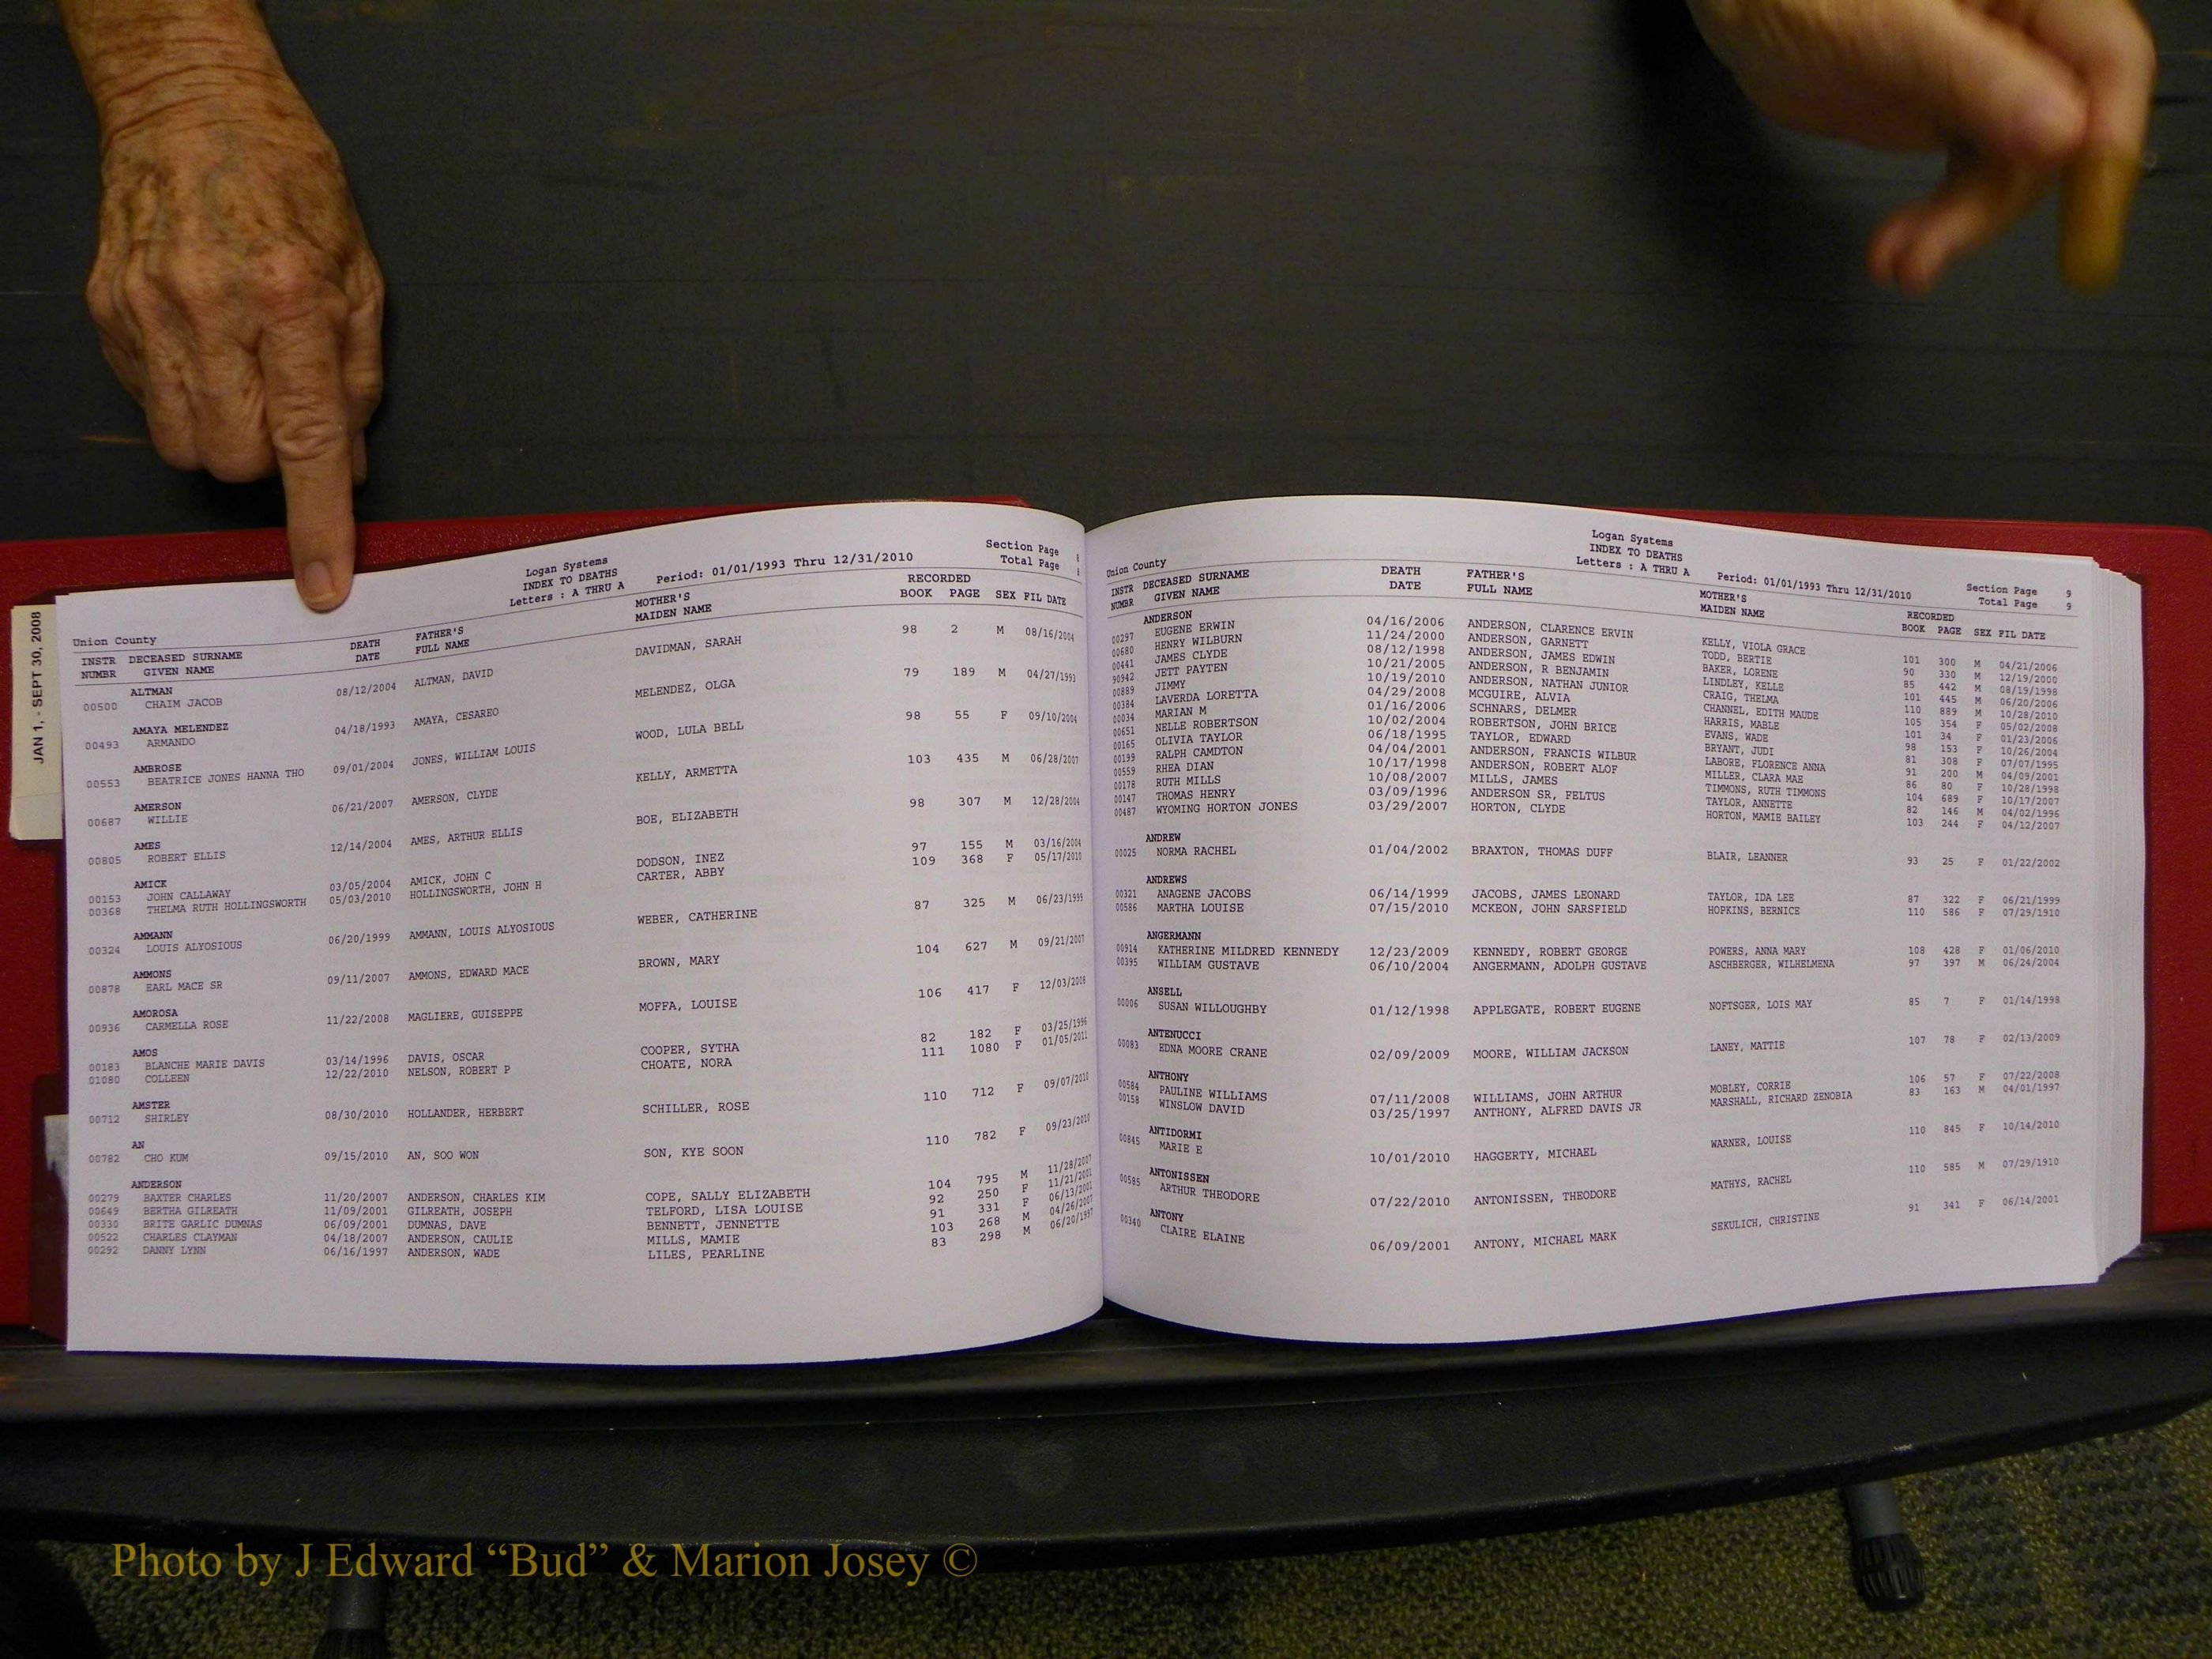 JAN 1, - SEPT 30, 2008
Logan Systems
INDEX TO DEATHS
Letters : A THRU A
Period: 01/01/1993 Thru 12/31/2010
Section Page
Total Page
Union County
INSTR DECEASED SURNAME DEATH FATHER'S MOTHER'S RECORDED
NUMBR GIVEN NAME DATE FULL NAME MAIDEN NAME BOOK PAGE SEX FIL DATE
ALTMAN
00500 CHAIM JACOB 08/12/2004 ALTMAN, DAVID DAVIDMAN, SARAH 98 2 M 08/16/2004
AMAYA MELENDEZ
00493 ARMANDO 04/18/1993 AMAYA, CESAREO MELENDEZ, OLGA 79 189 M 04/27/1993
AMBROSE
00553 BEATRICE JONES HANNA THO 09/01/2004 JONES, WILLIAM LOUIS WOOD, LULA BELL 98 55 F 09/10/2004
AMERSON
00687 WILLIE 06/21/2007 AMERSON, CLYDE KELLY, ARMETTA 103 435 M 06/28/2007
AMES
00805 ROBERT ELLIS 12/14/2004 AMES, ARTHUR ELLIS BOE, ELIZABETH 98 307 M 12/28/2004
AMICK
00153 JOHN CALLAWAY 03/05/2004 AMICK, JOHN C DODSON, INEZ 97 155 M 03/16/2004
00368 THELMA RUTH HOLLINGSWORTH 05/03/2010 HOLLINGSWORTH, JOHN H CARTER, ABBY 109 368 F 05/17/2010
AMMANN
00324 LOUIS ALYOSIOUS 06/20/1999 AMMANN, LOUIS ALYOSIOUS WEBER, CATHERINE 87 325 M 06/23/1999
AMMONS
00878 EARL MACE SR 09/11/2007 AMMONS, EDWARD MACE BROWN, MARY 104 627 M 09/21/2007
AMOROSA
00936 CARMELLA ROSE 11/22/2008 MAGLIERE, GUISEPPE MOFFA, LOUISE 106 417 F 12/03/2008
AMOS
00183 BLANCHE MARIE DAVIS 03/14/1996 DAVIS, OSCAR COOPER, SYTHA 82 182 F 03/25/1996
01080 COLLEEN 12/22/2010 NELSON, ROBERT P CHOATE, NORA 111 1080 F 01/05/2011
AMSTER
00712 SHIRLEY 08/30/2010 HOLLANDER, HERBERT SCHILLER, ROSE 110 712 F 09/07/2010
AN
00782 CHO KUM 09/15/2010 AN, SOO WON SON, KYE SOON 110 782 F 09/23/2010
ANDERSON
00279 BAXTER CHARLES 11/20/2007 ANDERSON, CHARLES KIM COPE, SALLY ELIZABETH 104 795 M 11/28/2007
00649 BERTHA GILREATH 11/09/2001 GILREATH, JOSEPH TELFORD, LISA LOUISE 92 250 F 11/21/2001
00330 BRITE GARLIC DUMNAS 06/09/2001 DUMNAS, DAVE BENNETT, JENNETTE 91 331 F 06/13/2001
00522 CHARLES CLAYMAN 04/18/2007 ANDERSON, CAULIE MILLS, MAMIE 103 268 M 04/26/2007
00292 DANNY LYNN 06/16/1997 ANDERSON, WADE LILES, PEARLINE 83 298 M 06/20/1997
Logan Systems
INDEX TO DEATHS
Letters : A THRU A
Period: 01/01/1993 Thru 12/31/2010
Section Page 9
Total Page 9
Union County
INSTR DECEASED SURNAME DEATH FATHER'S MOTHER'S RECORDED
NUMBR GIVEN NAME DATE FULL NAME MAIDEN NAME BOOK PAGE SEX FIL DATE
ANDERSON
00297 EUGENE ERWIN 04/16/2006 ANDERSON, CLARENCE ERVIN KELLY, VIOLA GRACE 101 300 M 04/21/2006
00680 HENRY WILBURN 11/24/2000 ANDERSON, GARNETT TODD, BERTIE 90 330 M 12/19/2000
00441 JAMES CLYDE 08/12/1998 ANDERSON, JAMES EDWIN BAKER, LORENE 85 442 M 08/19/1998
90942 JETT PAYTEN 10/21/2005 ANDERSON, R BENJAMIN LINDLEY, KELLE 101 445 M 06/20/2006
00889 JIMMY 10/19/2010 ANDERSON, NATHAN JUNIOR CRAIG, THELMA 110 889 M 10/28/2010
00384 LAVERDA LORETTA 04/29/2008 MCGUIRE, ALVIA CHANNEL, EDITH MAUDE 105 354 F 05/02/2008
00034 MARIAN M 01/16/2006 SCHNARS, DELMER HARRIS, MABLE 101 34 F 01/23/2006
00651 NELLE ROBERTSON 10/02/2004 ROBERTSON, JOHN BRICE EVANS, WADE 98 153 F 10/26/2004
00165 OLIVIA TAYLOR 06/18/1995 TAYLOR, EDWARD BRYANT, JUDI 81 308 F 07/07/1995
00199 RALPH CAMDTON 04/04/2001 ANDERSON, FRANCIS WILBUR LABORE, FLORENCE ANNA 91 200 M 04/09/2001
00559 RHEA DIAN 10/17/1998 ANDERSON, ROBERT ALOF MILLER, CLARA MAE 86 80 F 10/28/1998
00178 RUTH MILLS 10/08/2007 MILLS, JAMES TIMMONS, RUTH TIMMONS 104 689 F 10/17/2007
00147 THOMAS HENRY 03/09/1996 ANDERSON SR, FELTUS TAYLOR, ANNETTE 82 146 M 04/02/1996
00487 WYOMING HORTON JONES 03/29/2007 HORTON, CLYDE HORTON, MAMIE BAILEY 103 244 F 04/12/2007
ANDREW
00025 NORMA RACHEL 01/04/2002 BRAXTON, THOMAS DUFF BLAIR, LEANNER 93 25 F 01/22/2002
ANDREWS
00321 ANAGENE JACOBS 06/14/1999 JACOBS, JAMES LEONARD TAYLOR, IDA LEE 87 322 F 06/21/1999
00586 MARTHA LOUISE 07/15/2010 MCKEON, JOHN SARSFIELD HOPKINS, BERNICE 110 586 F 07/29/1910
ANGERMANN
00914 KATHERINE MILDRED KENNEDY 12/23/2009 KENNEDY, ROBERT GEORGE POWERS, ANNA MARY 108 428 F 01/06/2010
00395 WILLIAM GUSTAVE 06/10/2004 ANGERMANN, ADOLPH GUSTAVE ASCHBERGER, WILHELMENA 97 397 M 06/24/2004
ANSELL
00006 SUSAN WILLOUGHBY 01/12/1998 APPLEGATE, ROBERT EUGENE NOFTSGER, LOIS MAY 85 7 F 01/14/1998
ANTENUCCI
00083 EDNA MOORE CRANE 02/09/2009 MOORE, WILLIAM JACKSON LANEY, MATTIE 107 78 F 02/13/2009
ANTHONY
00584 PAULINE WILLIAMS 07/11/2008 WILLIAMS, JOHN ARTHUR MOBLEY, CORRIE 106 57 F 07/22/2008
00158 WINSLOW DAVID 03/25/1997 ANTHONY, ALFRED DAVIS JR MARSHALL, RICHARD ZENOBIA 83 163 M 04/01/1997
ANTIDORMI
00845 MARIE E 10/01/2010 HAGGERTY, MICHAEL WARNER, LOUISE 110 845 F 10/14/2010
ANTONISSEN
00585 ARTHUR THEODORE 07/22/2010 ANTONISSEN, THEODORE MATHYS, RACHEL 110 585 M 07/29/1910
ANTONY
00340 CLAIRE ELAINE 06/09/2001 ANTONY, MICHAEL MARK SEKULICH, CHRISTINE 91 341 F 06/14/2001
Photo by J Edward “Bud” & Marion Josey ©